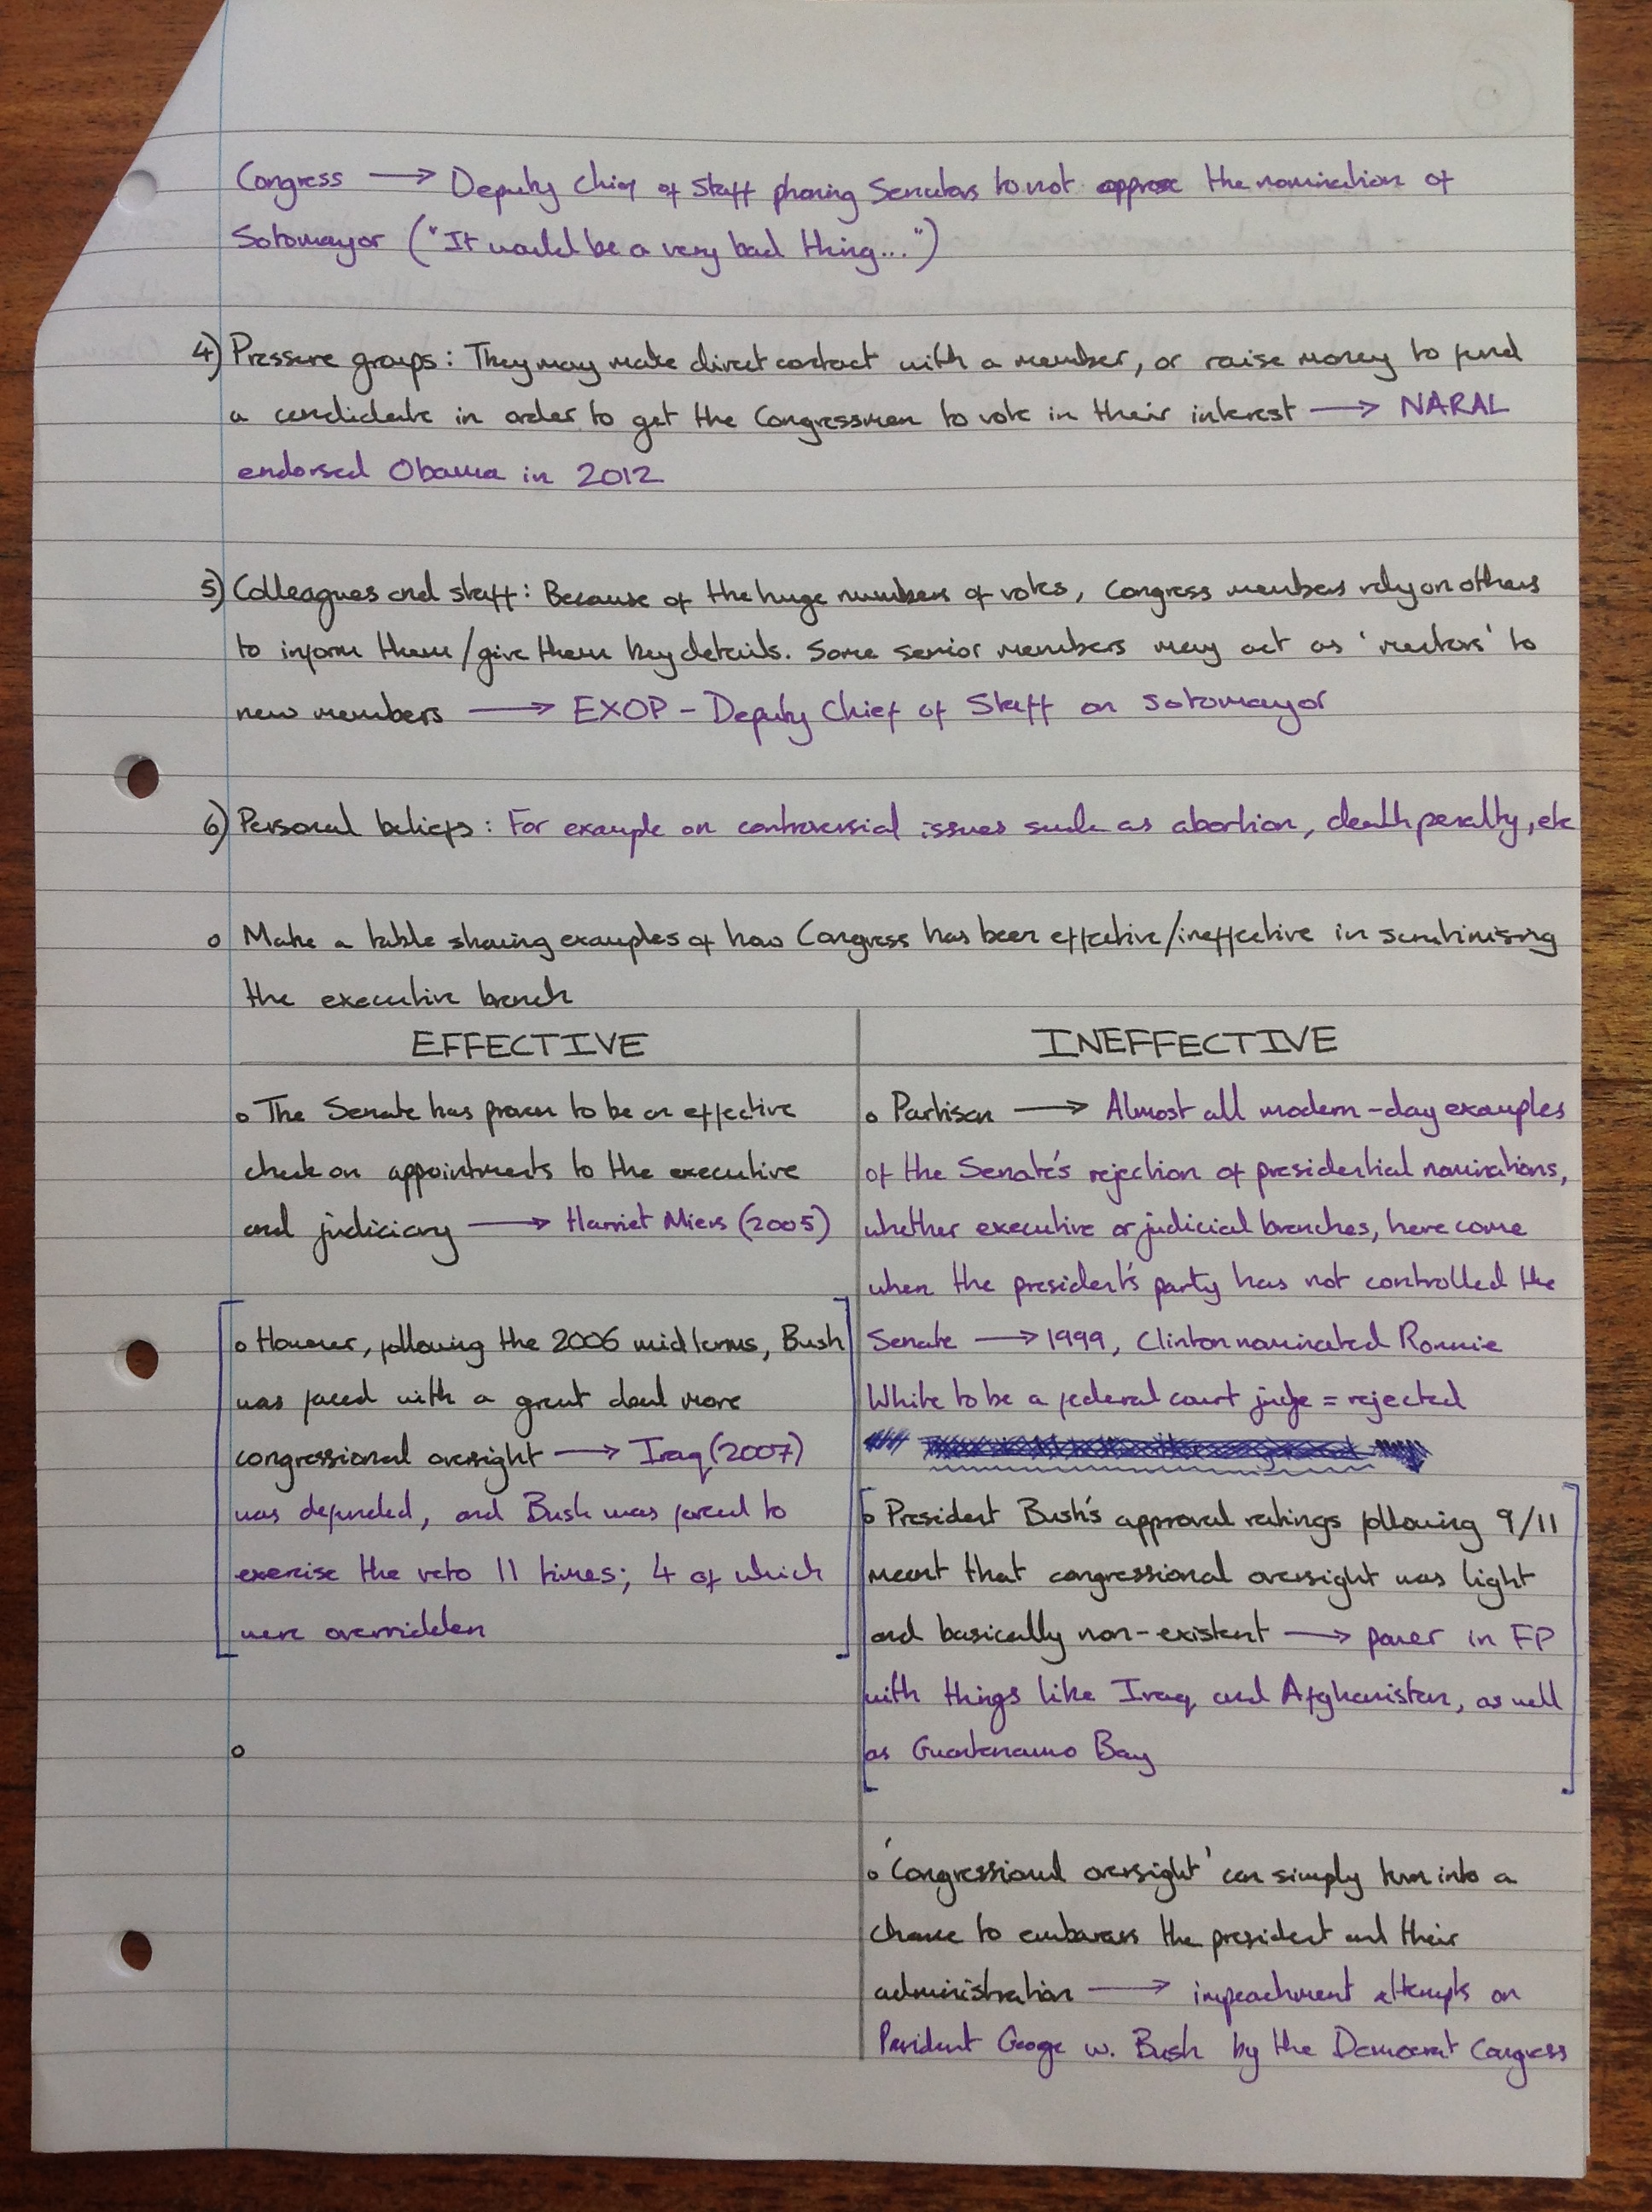 Congress → Deputy Chief of Staff phoning Senators to not approve the nomination of
Sotomayor ("It would be a very bad thing...")
4) Pressure groups: They may make direct contact with a member, or raise money to fund
a candidate in order to get the Congressmen to vote in their interest → NARAL
endorsed Obama in 2012
5) Colleagues and staff: Because of the huge numbers of votes, Congress members rely on others
to inform them/give them key details. Some senior members may act as 'mentors' to
new members → EXOP - Deputy Chief of Staff on Sotomayor
6) Personal beliefs: For example on controversial issues such as abortion, death penalty, etc
o Make a table showing examples of how Congress has been effective/ineffective in scrutinising
the executive branch
EFFECTIVE
o The Senate has proven to be an effective
check on appointments to the executive
and judiciary → Harriet Miers (2005)
o However, following the 2006 midterms, Bush
was faced with a great deal more
congressional oversight → Iraq (2007)
was defunded, and Bush was forced to
exercise the veto 11 times; 4 of which
were overridden
o
INEFFECTIVE
o Partisan → Almost all modern-day examples
of the Senate's rejection of presidential nominations,
whether executive or judicial branches, have come
when the president's party has not controlled the
Senate → 1999, Clinton nominated Ronnie
White to be a federal court judge = rejected
o President Bush's approval ratings following 9/11
meant that congressional oversight was light
and basically non-existent → power in FP
with things like Iraq and Afghanistan, as well
as Guantanamo Bay
o 'Congressional oversight' can simply turn into a
chance to embarass the president and their
administration → impeachment attempts on
President George W. Bush by the Democrat Congress